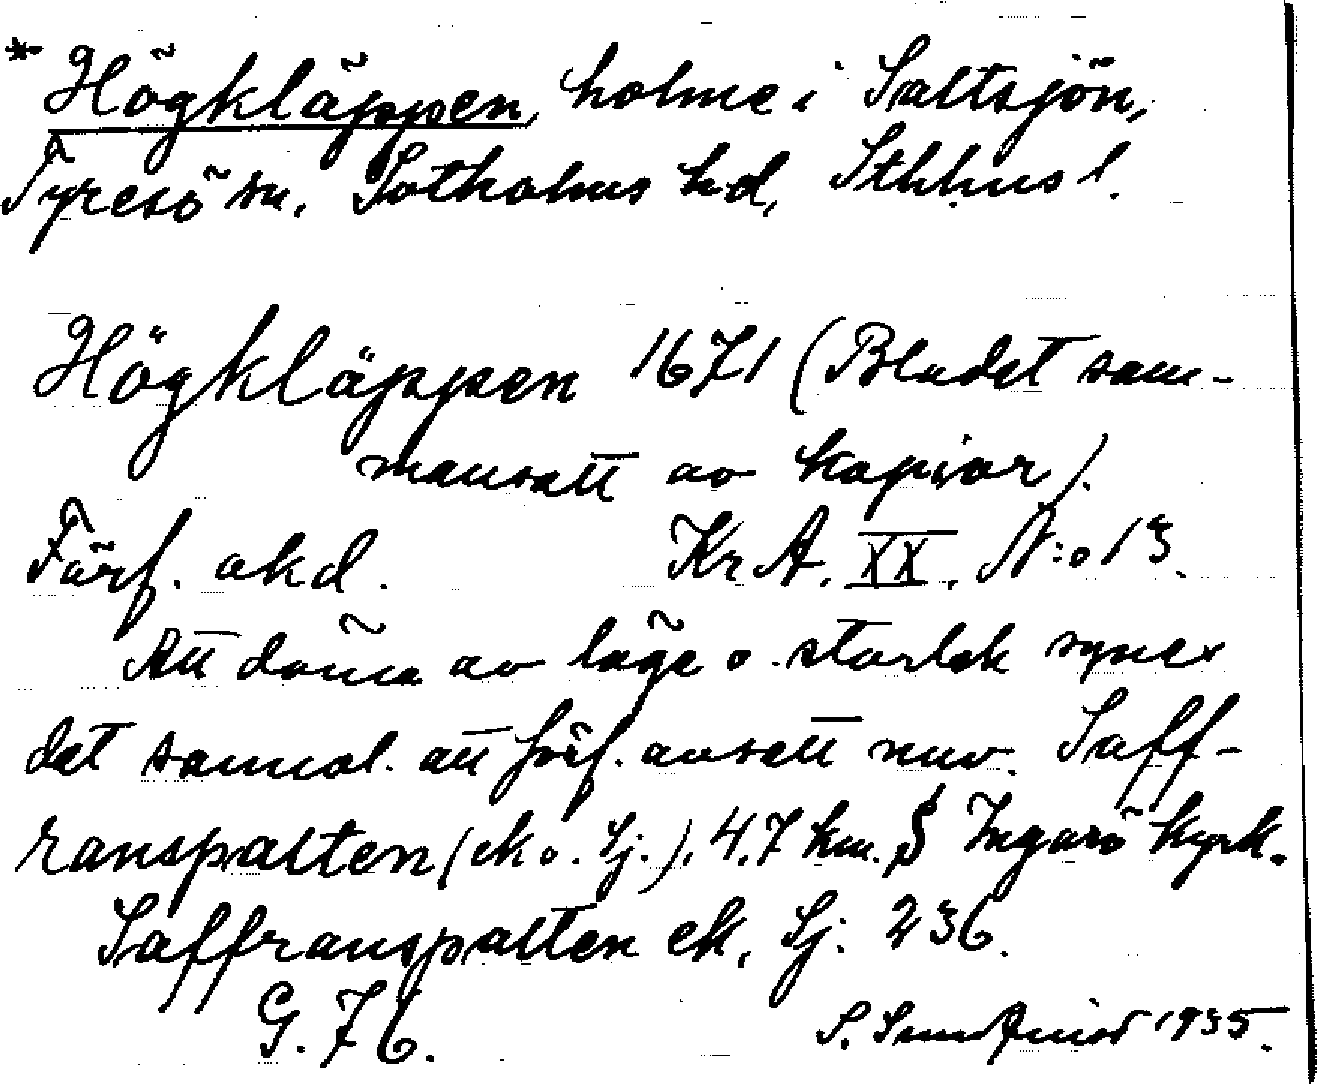 * Högkläppen, holme i Saltsjön,
Tyresö sn. Sotholms hd, Sthlms l.
Högkläppen 1671 (Bladet sam-
mansatt av kopior).
Förf. okd. Kr A. XX. N:o 13.
Att döma av läge o. storlek synes
det sannol. att förf. avsett nuv. Saff-
ranspalten (ek o. Sj.), 4.7 km. S Ingarö kyrk.
Saffranspalten ek, Sj. 236.
G. 76.
S. 1935.